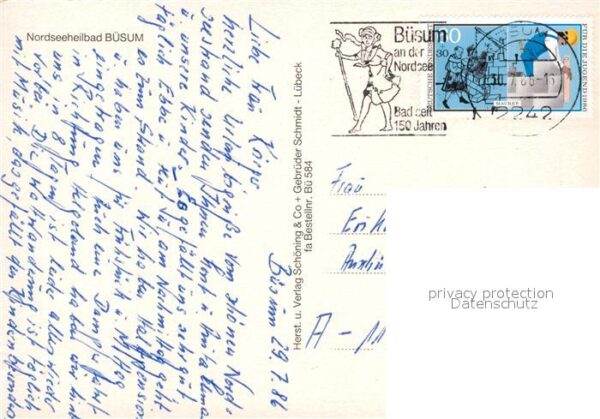 Nordseeheilbad BÜSUM
Büsum 29.7.86
Liebe Frau
herzliche Urlaubsgrüße vom schönen Nord-
seestrand senden Ihnen Horst u
u unsere Kinder. Es gefällt uns sehr gut
täglich Ebbe u Flut, am Nachmittag geht
es zum Strand. Wir haben Halbpension
u haben uns für Frühstück u Mittag
eingetragen. Auch eine Dampferfahrt
in Richtung Helgoland haben wir
uns ist leider alles wieder
vorbei. Die Wattwanderung ist täglich
mit Musik das gefällt den Kindern besonders
Herst. u. Verlag Schöning & Co + Gebrüder Schmidt - Lübeck
fa Bestellnr. Bü 584
Büsum
an der
Nordsee
Bad seit
150 Jahren
2242
FÜR DIE JUGEND 1986
MAURER
Frau
A -
privacy protection
Datenschutz